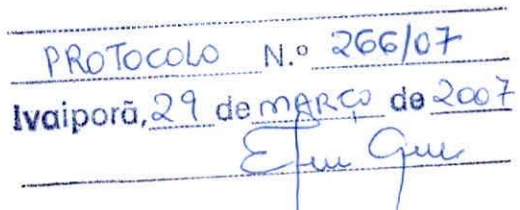 PROTOCOLO N.º 266/07
Ivaiporã, 29 de MARÇO de 2007